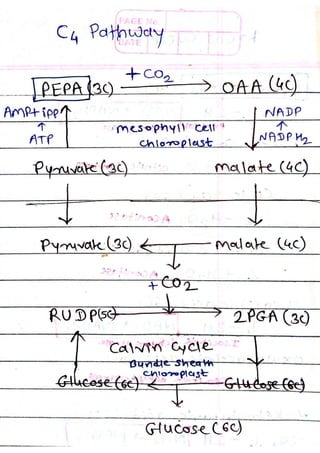 PAGE No.
DATE
C4 Pathway
+CO2
PEPA (3C) → OAA (4C)
AMP+ipp NADP
ATP NADPH2
mesophyll cell
chloroplast
Pyruvate (3C) malate (4C)
Pyruvate (3C) ← malate (4C)
+CO2
RUDP(5C) → 2PGA (3C)
Calvin Cycle
Bundle sheath
chloroplast
Glucose (6C) ← Glucose (6C)
Glucose (6C)